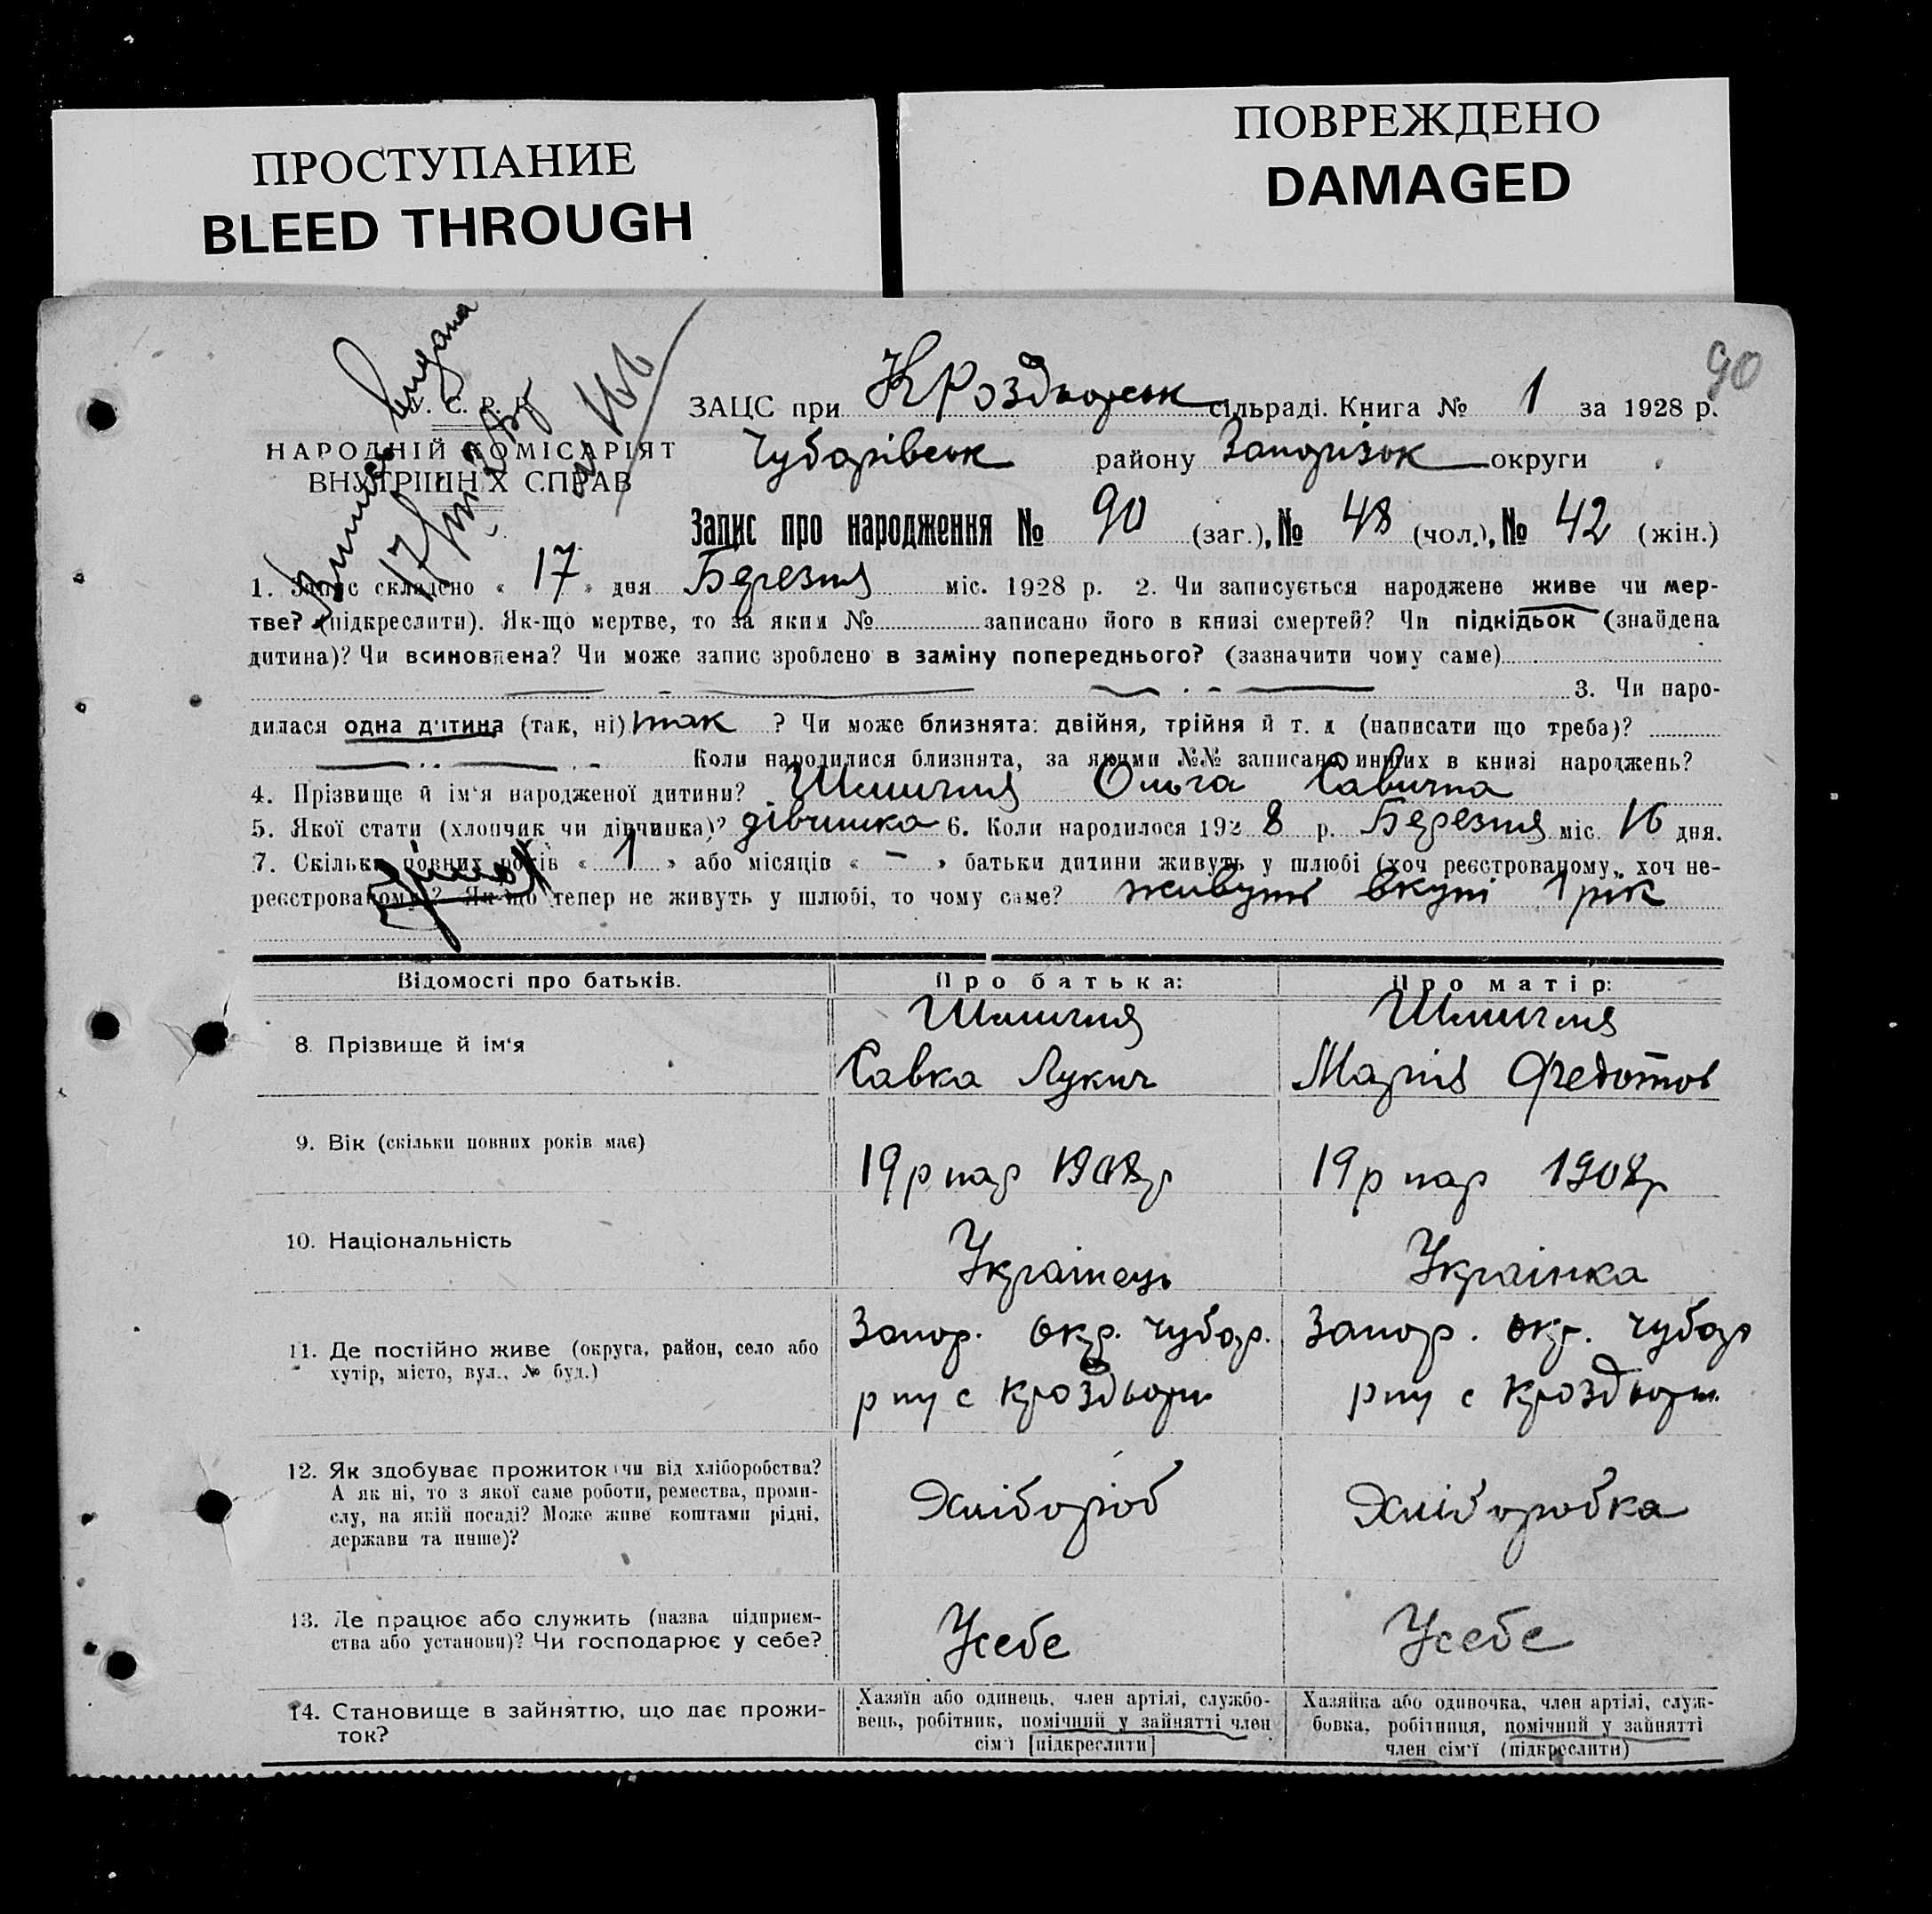 ПРОСТУПАНИЕ
BLEED THROUGH
ПОВРЕЖДЕНО
DAMAGED
90
Виписъ видана
17
У. С. Р. Р.
НАРОДНІЙ КОМІСАРІЯТ
ВНУТРІШНІХ СПРАВ
ЗАЦС при КРоздорськ сільраді. Книга № 1 за 1928 р.
Чубарівськ району Запорізьк округи
Запис про народження № 90 (заг.), № 48 (чол.), № 42 (жін.)
1. Запис складено « 17 » дня Березня міс. 1928 р. 2. Чи записується народжене живе чи мер-
тве? (підкреслити). Як-що мертве, то за яким № записано його в книзі смертей? Чи підкідьок (знайдена
дитина)? Чи всиновлена? Чи може запис зроблено в заміну попереднього? (зазначити чому саме)
3. Чи наро-
дилася одна дитина (так, ні) так ? Чи може близнята: двійня, трійня й т. д (написати що треба)?
Коли народилися близнята, за якими №№ записано инших в книзі народжень?
4. Прізвище й ім'я народженої дитини? Ольга Савична
5. Якої стати (хлопчик чи дівчинка)? дівчинка 6. Коли народилося 192 8 р. Березня міс. 16 дня.
7. Скільки повних років « 1 » або місяців « - » батьки дитини живуть у шлюбі (хоч реєстрованому, хоч не-
реєстрованому)? Як-що тепер не живуть у шлюбі, то чому саме? живуть вкупі 1 рік
Відомості про батьків. Про батька: Про матір:
8. Прізвище й ім'я
Савка Лукич Марія Федотов
9. Вік (скільки повних років має)
19 р нар 1908р 19 р нар 1908р
10. Національність
Українець Українка
11. Де постійно живе (округа, район, село або
хутір, місто, вул., № буд.)
Запор. окр. Чубар. Запор. окр. Чубар
р ну с Кроздори р ну с Кроздори
12. Як здобуває прожиток (чи від хліборобства?
А як ні, то з якої саме роботи, ремества, проми-
слу, на якій посаді? Може живе коштами рідні,
держави та инше)?
Хлібороб Хліборобка
13. Де працює або служить (назва підприєм-
ства або установи)? Чи господарює у себе?
Усебе Усебе
14. Становище в зайняттю, що дає прожи-
ток?
Хазяїн або одинець, член артілі, службо-
вець, робітник, помічний у зайнятті член
сім'ї [підкреслити]
Хазяйка або одиночка, член артілі, служ-
бовка, робітниця, помічний у зайнятті
член сім'ї (підкреслити)